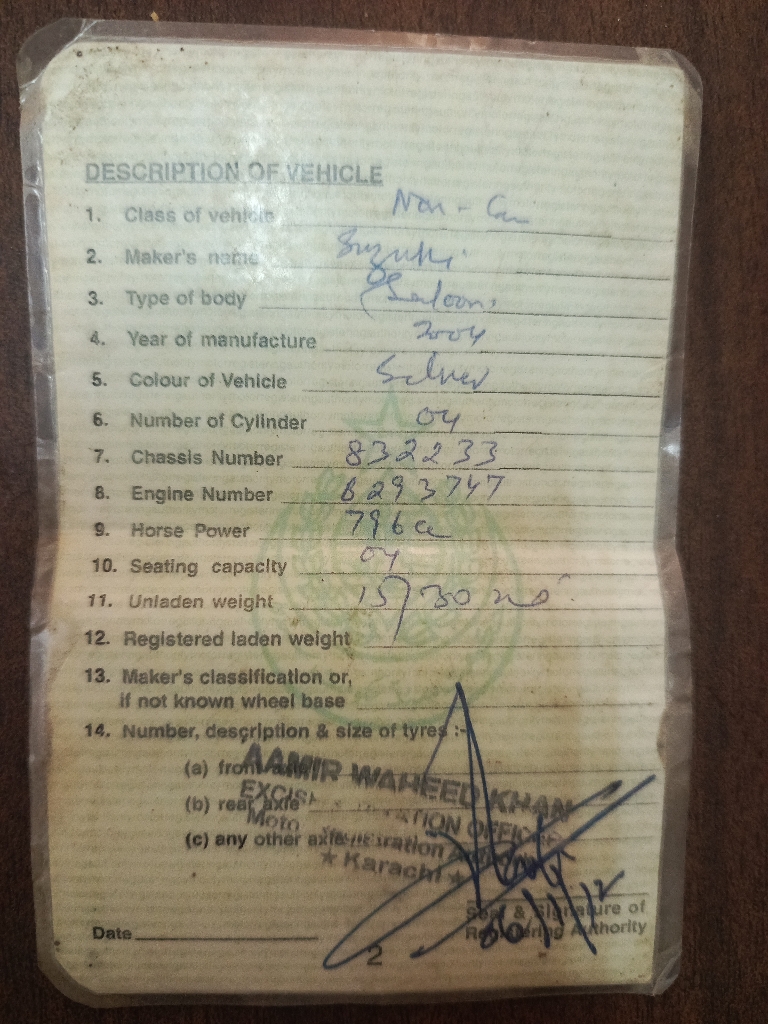 DESCRIPTION OF VEHICLE
1. Class of vehicle
2. Maker's name Suzuki
3. Type of body Saloon
4. Year of manufacture 2004
5. Colour of Vehicle Silver
6. Number of Cylinder 04
7. Chassis Number 832233
8. Engine Number B293747
9. Horse Power 796cc
10. Seating capacity 04
11. Unladen weight
12. Registered laden weight
13. Maker's classification or,
if not known wheel base
14. Number, description & size of tyres :-
(a) front axle
AAMIR WAHEED KHAN
(b) rear axle
EXCISE & TAXATION OFFICER
(c) any other axle
Motor Registration
★ Karachi ★
Seal & Signature of
Registering Authority
Date
2